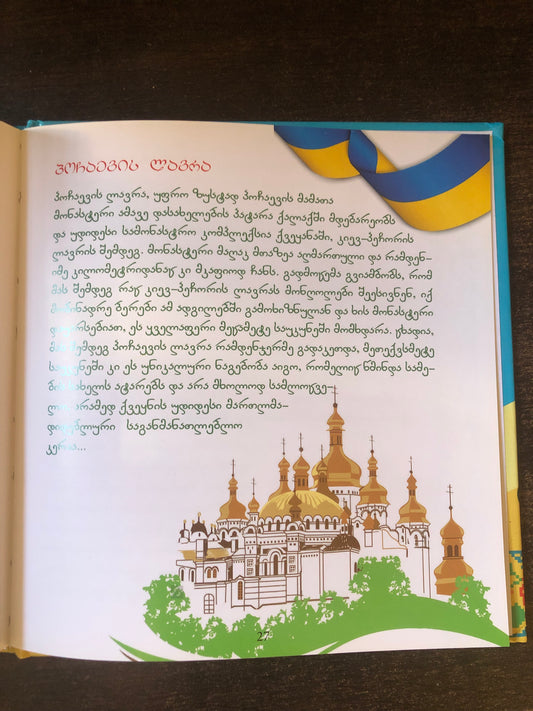 პოჩაევის ლავრა
პოჩაევის ლავრა, უფრო ზუსტად პოჩაევის მამათა
მონასტერი ამავე დასახელების პატარა ქალაქში მდებარეობს
და უდიდესი სამონასტრო კომპლექსია ქვეყანაში, კიევ-პეჩორის
ლავრის შემდეგ. მონასტერი მაღალ მთაზეა აღმართული და რამდენ-
იმე კილომეტრიდანაც კი მკაფიოდ ჩანს. გადმოცემა გვიამბობს, რომ
მას შემდეგ რაც კიევ-პეჩორის ლავრას მონღოლები შეესივნენ, იქ
მცხინადრე ბერები ამ ადგილებში გამოხიზნულან და ხის მონასტერი
ეს ყველაფერი მეცამეტე საუკუნეში მომხდარა. ცხადია,
შემდეგ პოჩაევის ლავრა რამდენჯერმე გადაკეთდა, მეთექვსმეტე
კი ეს უნიკალური ნაგებობა აიგო, რომელიც წმინდა სამე-
ატარებს და არა მხოლოდ სამლოცვე-
არამედ ქვეყნის უდიდესი მართლმა-
საგანმანათლებლო
27